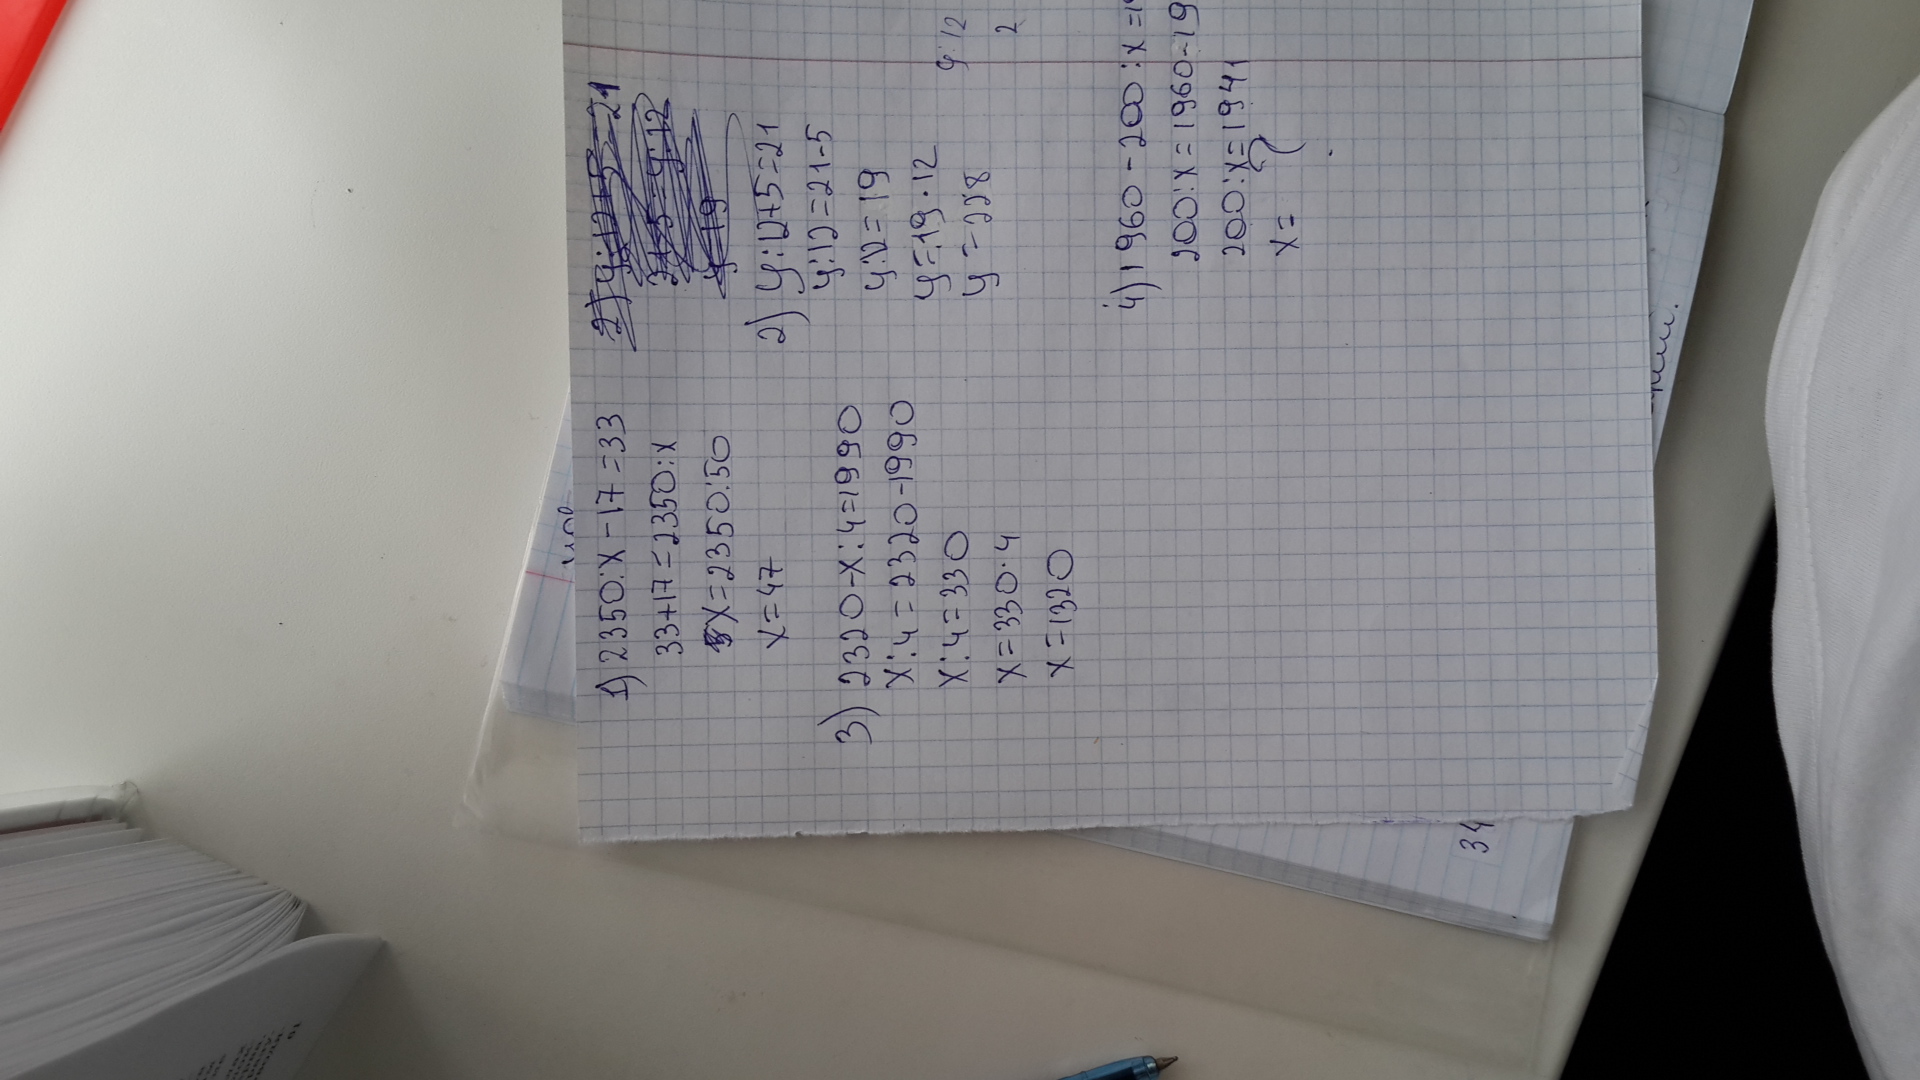 1) 2350:x-17=33
33+17=2350:x
x=2350:50
x=47
2) y:12+5=21
y:12=21-5
y:12=19
y=19·12
y=228
3) 2320-x:4=1990
x:4=2320-1990
x:4=330
x=330·4
x=1320
4) 1960-200:x=
200:x=1960-19
200:x=1941
x= ?
y:12
2
34